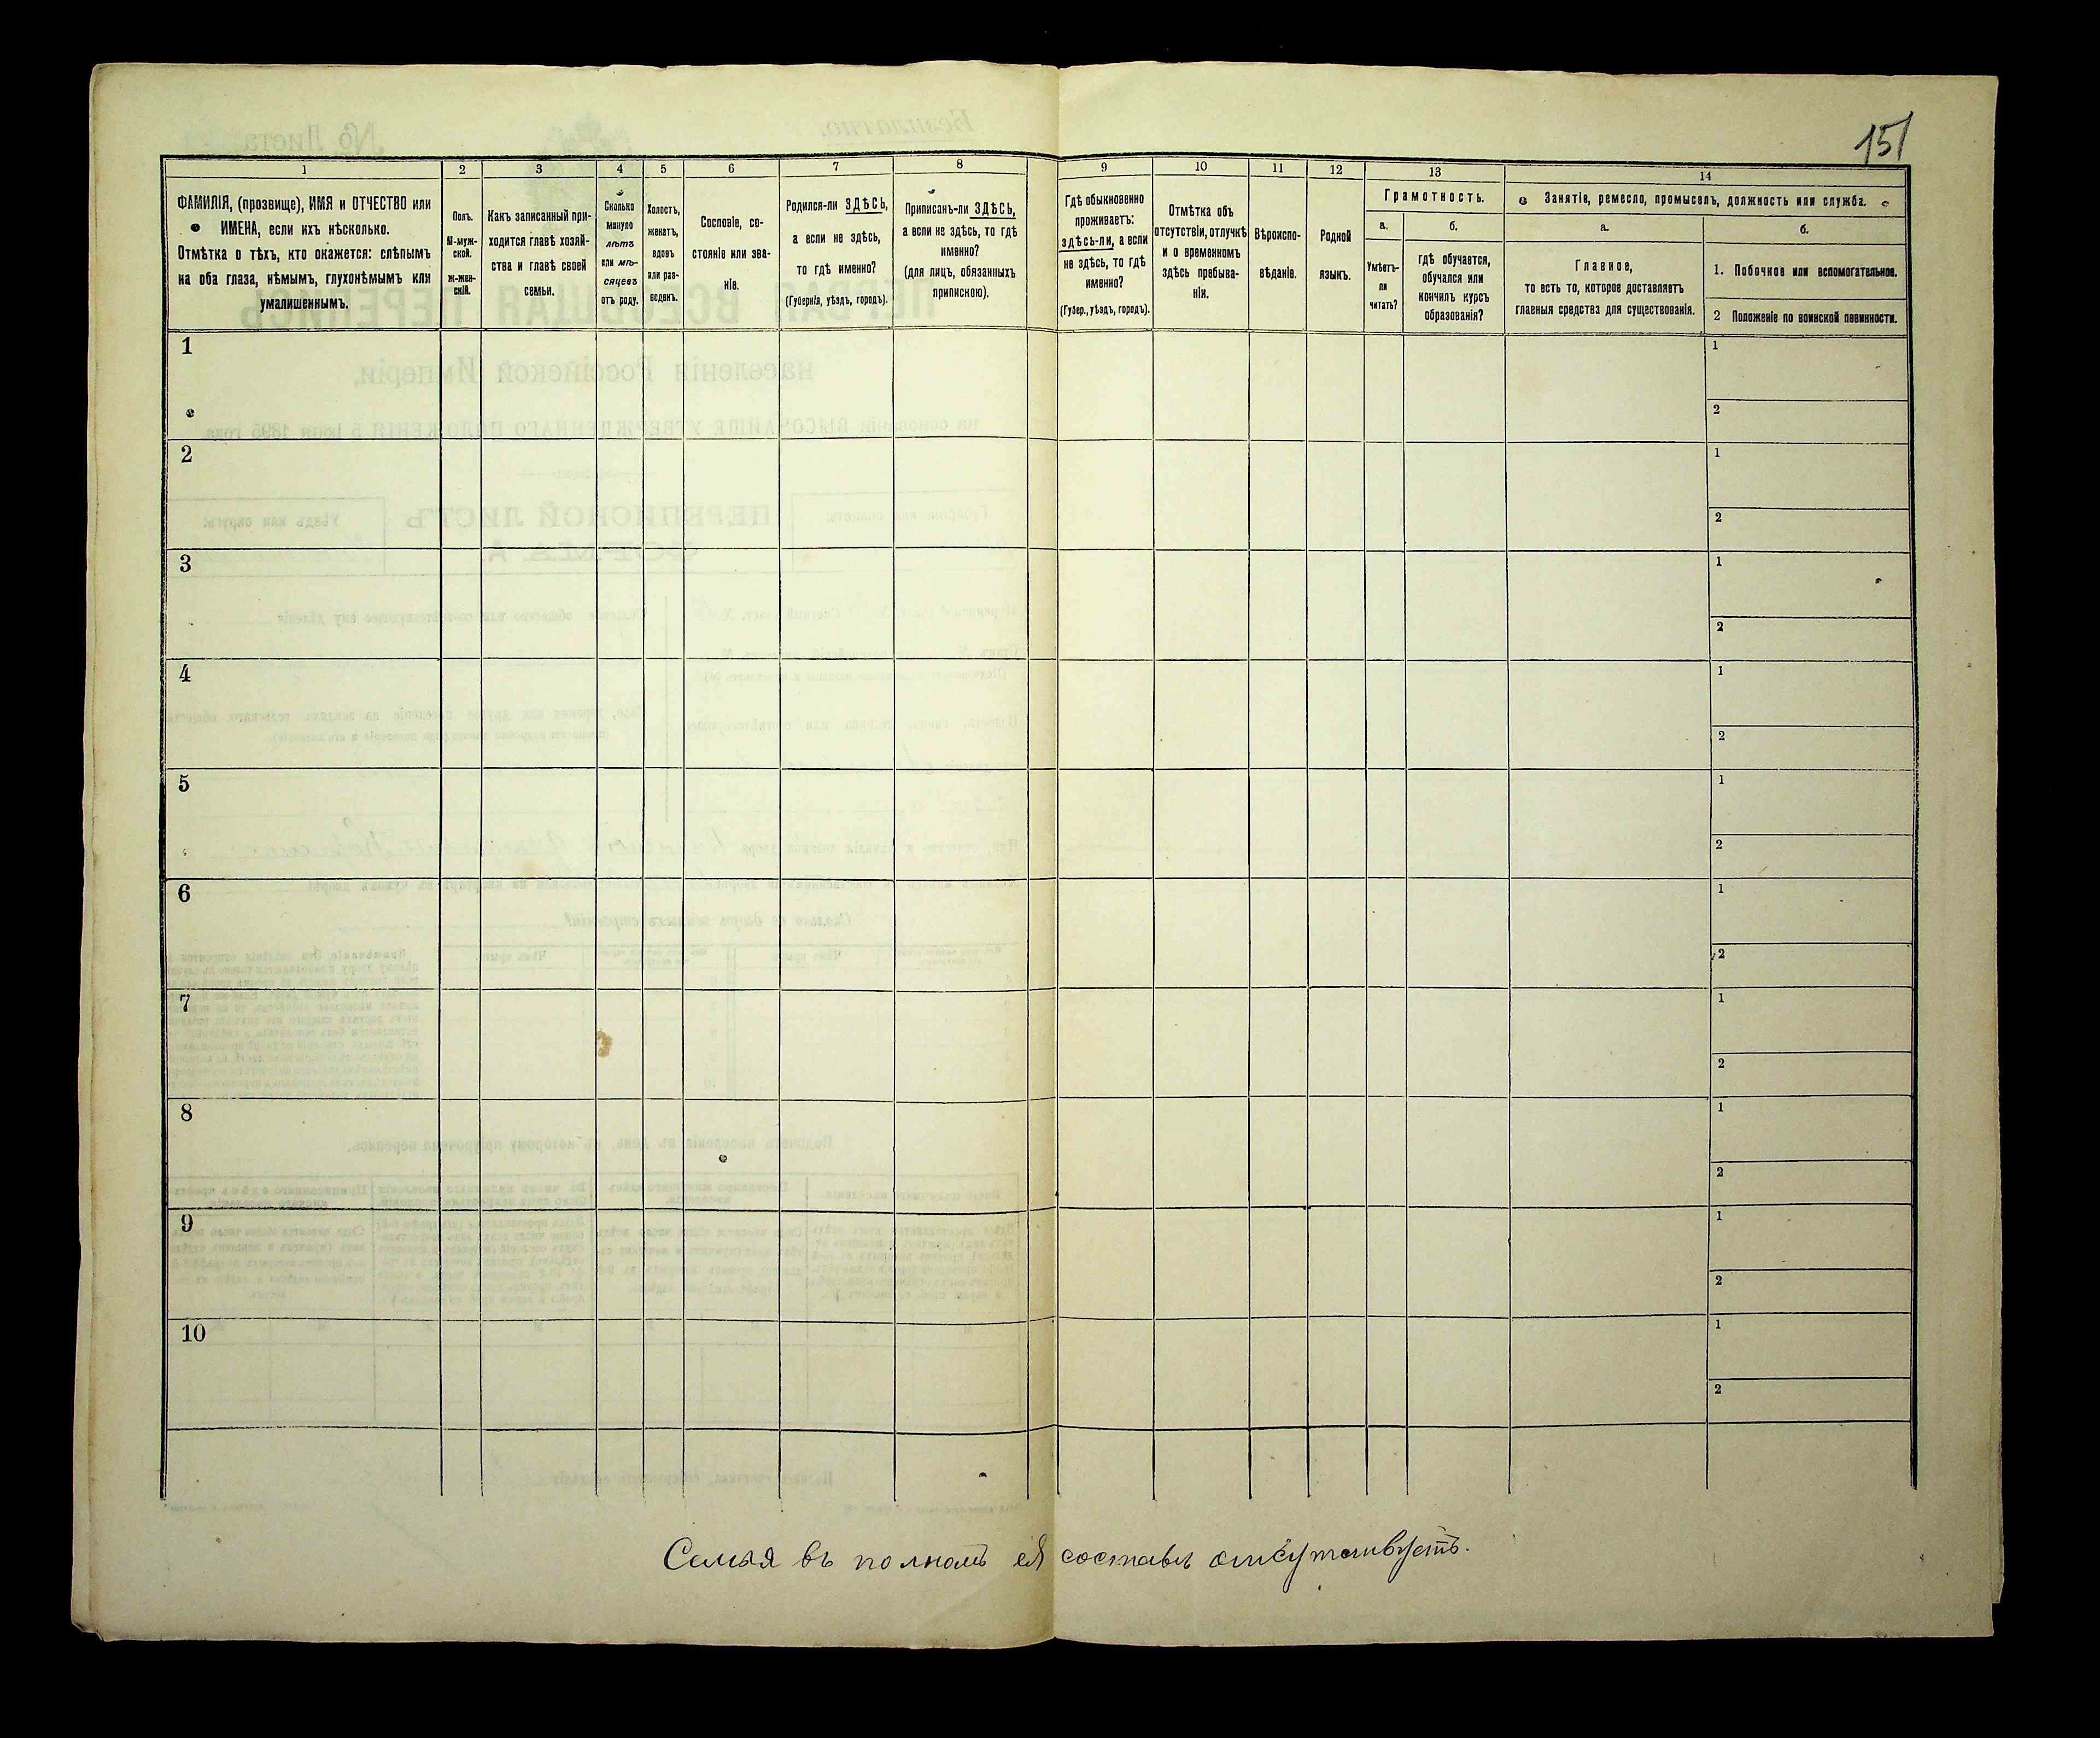 151
1
2
3
4
5
6
7
8
9
10
11
12
13
14
ФАМИЛІЯ, (прозвище), ИМЯ и ОТЧЕСТВО или
ИМЕНА, если ихъ нѣсколько.
Отмѣтка о тѣхъ, кто окажется: слѣпымъ
на оба глаза, нѣмымъ, глухонѣмымъ или
умалишеннымъ.
Полъ.
М-муж-
ской.
Ж-жен-
скій.
Какъ записанный при-
ходится главѣ хозяй-
ства и главѣ своей
семьи.
Сколько
минуло
лѣтъ
или мѣ-
сяцевъ
отъ роду.
Холостъ,
женатъ,
вдовъ
или раз-
веденъ.
Сословіе, со-
стояніе или зва-
ніе.
Родился-ли ЗДѢСЬ,
а если не здѣсь,
то гдѣ именно?
(Губернія, уѣздъ, городъ).
Приписанъ-ли ЗДѢСЬ,
а если не здѣсь, то гдѣ
именно?
(для лицъ, обязанныхъ
припискою).
Гдѣ обыкновенно
проживаетъ:
здѣсь-ли, а если
не здѣсь, то гдѣ
именно?
(Губер., уѣздъ, городъ).
Отмѣтка объ
отсутствіи, отлучкѣ
и о временномъ
здѣсь пребыва-
ніи.
Вѣроиспо-
вѣданіе.
Родной
языкъ.
Грамотность.
а.
Умѣетъ-
ли
читать?
б.
гдѣ обучается,
обучался или
кончилъ курсъ
образованія?
Занятіе, ремесло, промыселъ, должность или служба.
а.
Главное,
то есть то, которое доставляетъ
главныя средства для существованія.
б.
1. Побочное или вспомогательное.
2 Положеніе по воинской повинности.
1
1
2
2
1
2
3
1
2
4
1
2
5
1
2
6
1
2
7
1
2
8
1
2
9
1
2
10
1
2
Семья въ полномъ ея составѣ отсутствуетъ.